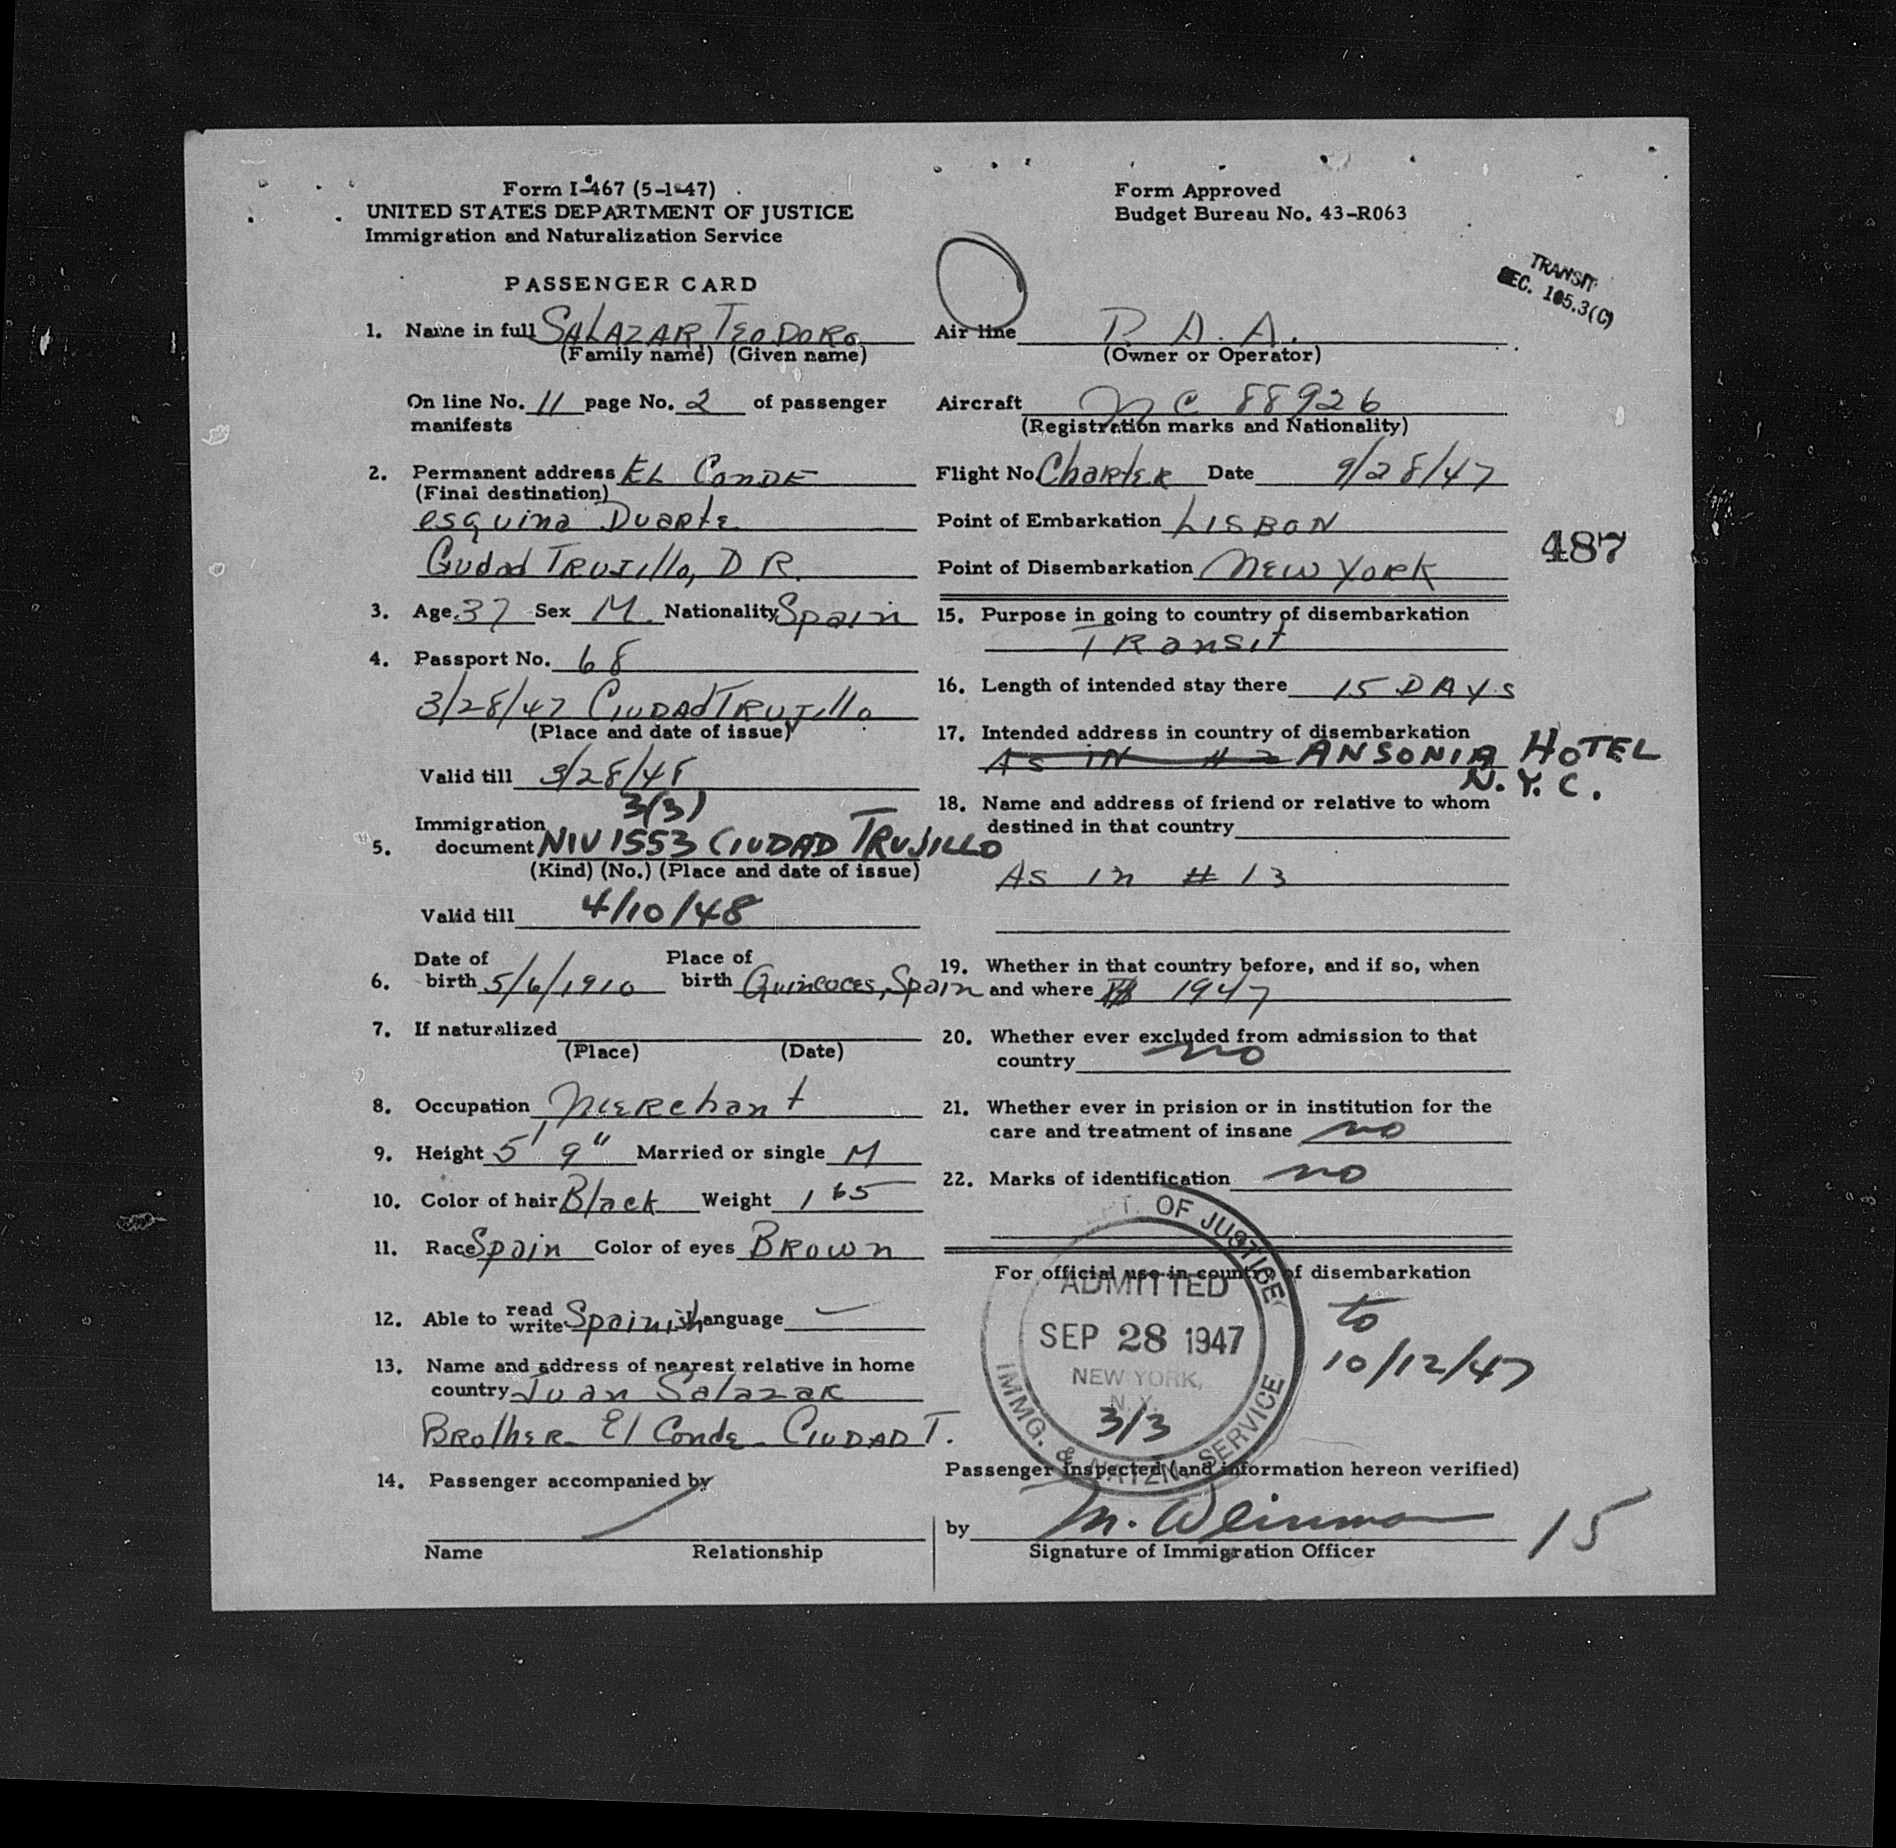 Form I-467 (5-1-47)
UNITED STATES DEPARTMENT OF JUSTICE
Immigration and Naturalization Service
PASSENGER CARD
1. Name in full SALAZAR TEODORO
(Family name) (Given name)
On line No. 11 page No. 2 of passenger
manifests
2. Permanent address EL CONDE
(Final destination)
esquina Duarte
Ciudad TRUJillo, D R.
3. Age 37 Sex M. Nationality Spain
4. Passport No. 68
3/28/47 CIUDAD TRUJillo
(Place and date of issue)
Valid till 3/28/48
3(3)
Immigration
5. document NIV 1553 CIUDAD TRUJILLO
(Kind) (No.) (Place and date of issue)
Valid till 4/10/48
Date of Place of
6. birth 5/6/1910 birth Quincoces, Spain
7. If naturalized
(Place) (Date)
8. Occupation Merchant
9. Height 5' 9" Married or single M
10. Color of hair Black Weight 165
11. Race Spain Color of eyes BROWN
12. Able to read write Spainish language —
13. Name and address of nearest relative in home
country Juan Salazar
BROTHER - El Conde - CIUDAD T.
14. Passenger accompanied by
Name Relationship
Form Approved
Budget Bureau No. 43-R063
TRANSIT
SEC. 105.3(C)
Air line P. A. A.
(Owner or Operator)
Aircraft NC 88926
(Registration marks and Nationality)
Flight No. Charter Date 9/28/47
Point of Embarkation LISBON
487
Point of Disembarkation NEW YORK
15. Purpose in going to country of disembarkation
TRansit
16. Length of intended stay there 15 DAYS
17. Intended address in country of disembarkation
As in # 2 ANSONIA HOTEL
N.Y.C.
18. Name and address of friend or relative to whom
destined in that country
As in # 13
19. Whether in that country before, and if so, when
and where 1947
20. Whether ever excluded from admission to that
country no
21. Whether ever in prision or in institution for the
care and treatment of insane no
22. Marks of identification no
For official use in country of disembarkation
DEPT. OF JUSTICE
ADMITTED
SEP 28 1947
NEW YORK,
N.Y.
3/3
IMMG. & NATZN. SERVICE
to
10/12/47
Passenger inspected (and information hereon verified)
by M. Weinman
15
Signature of Immigration Officer